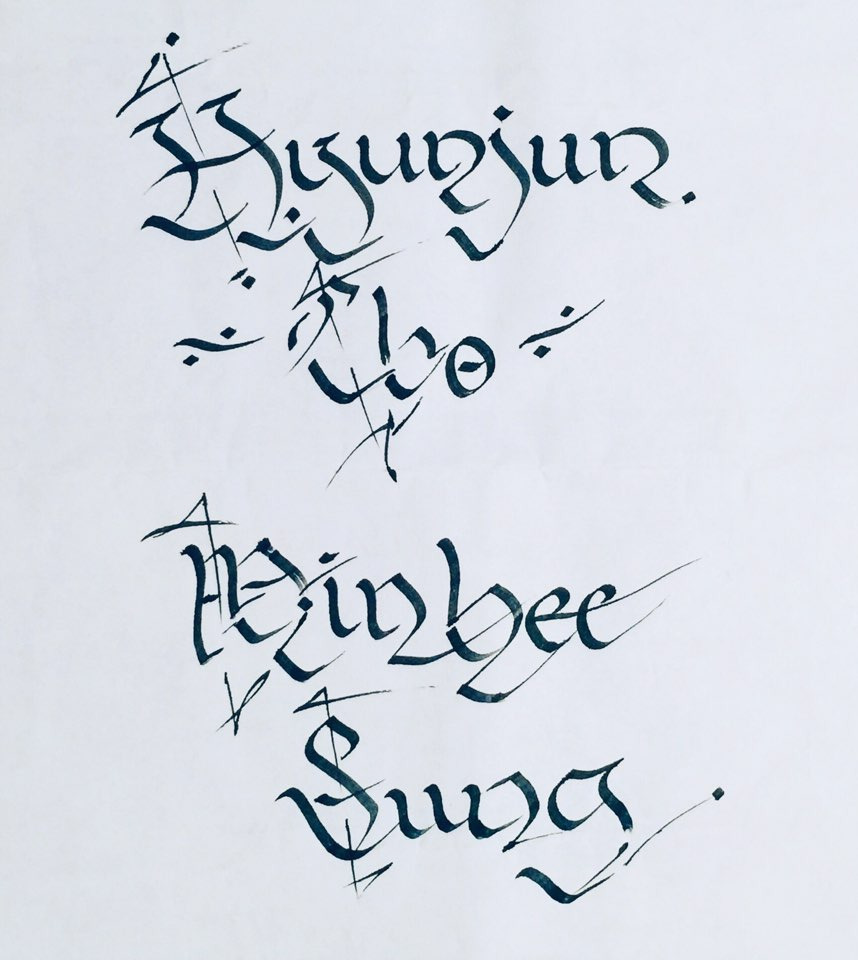 Hyunjun
Cho
Minhee
Sung